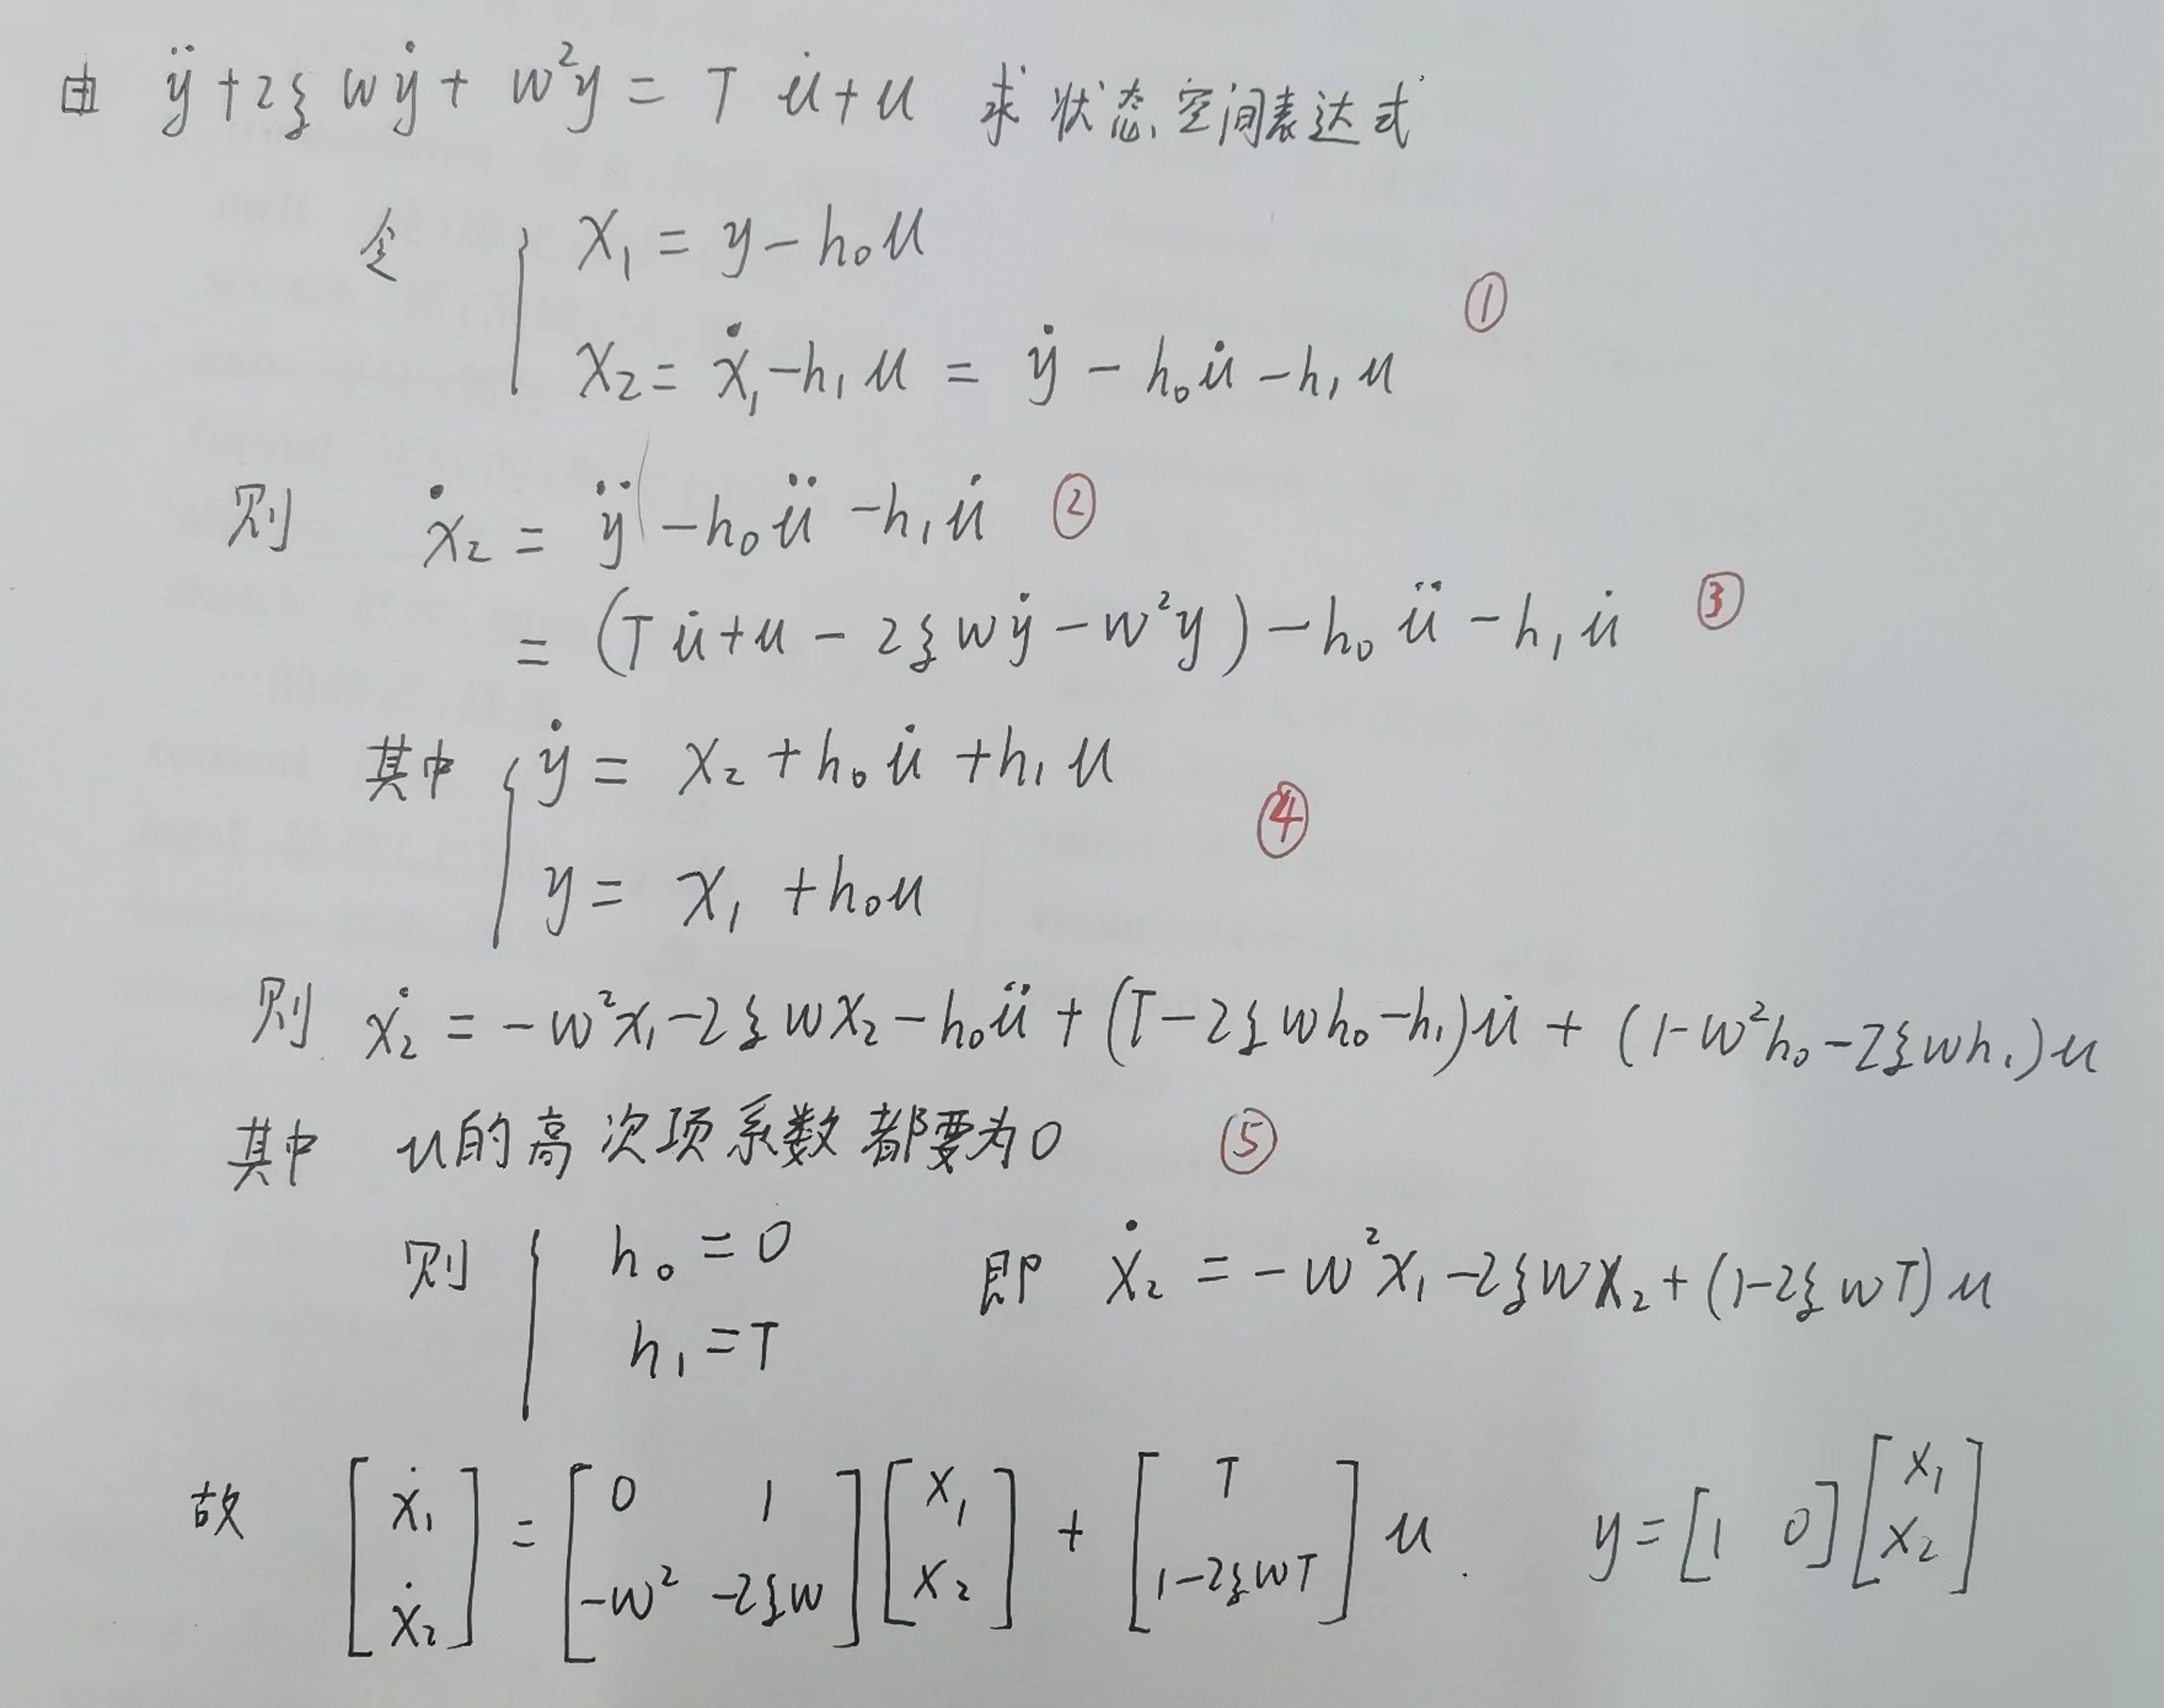 由 ÿ + 2ξwẏ + w²y = T u̇ + u 求状态空间表达式
令 { x₁ = y − h₀u
x₂ = ẋ₁ − h₁u = ẏ − h₀u̇ − h₁u ①
则 ẋ₂ = ÿ − h₀ü − h₁u̇ ②
= (T u̇ + u − 2ξwẏ − w²y) − h₀ü − h₁u̇ ③
其中 { ẏ = x₂ + h₀u̇ + h₁u
y = x₁ + h₀u ④
则 ẋ₂ = −w²x₁ − 2ξwx₂ − h₀ü + (T − 2ξwh₀ − h₁)u̇ + (1 − w²h₀ − 2ξwh₁)u
其中 u的高次项系数都要为0 ⑤
则 { h₀ = 0 即 ẋ₂ = −w²x₁ − 2ξwx₂ + (1 − 2ξwT)u
h₁ = T
故 [ẋ₁ ẋ₂] = [0 1 −w² −2ξw] [x₁ x₂] + [T 1−2ξwT] u. y = [1 0] [x₁ x₂]